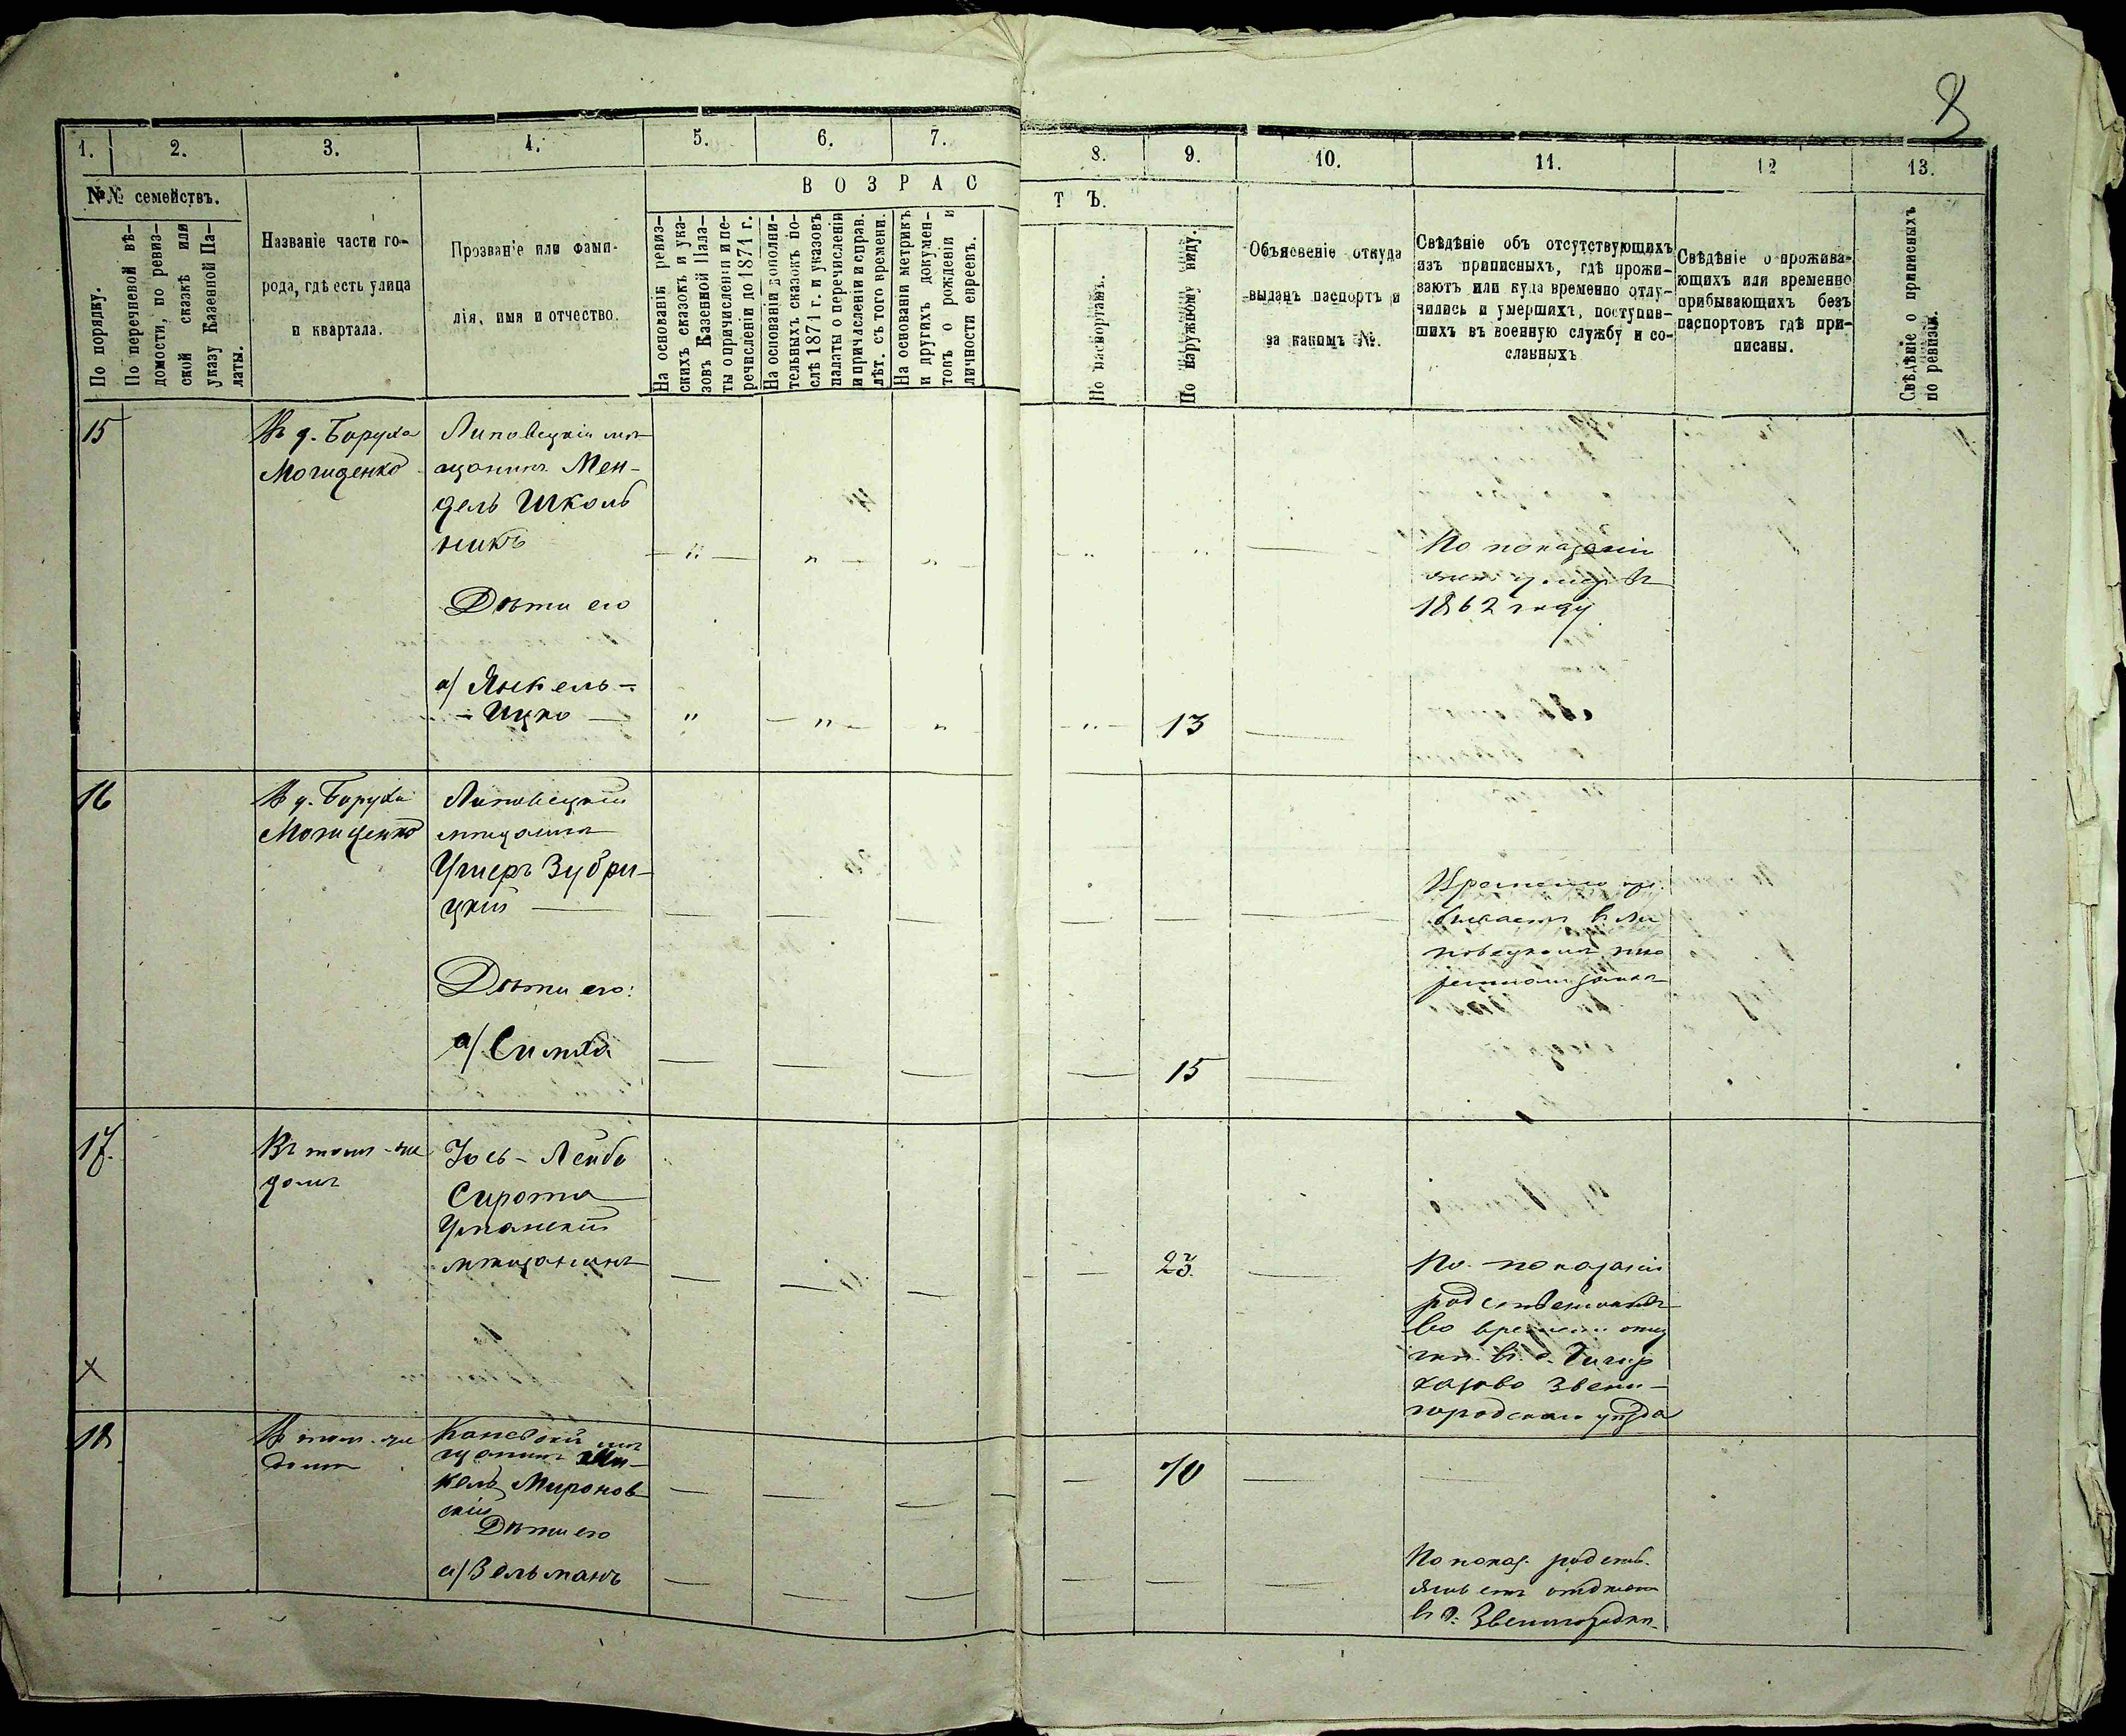 9
1.
2.
3.
4.
5.
6.
7.
8.
9.
10.
11.
12
13.
№№ семействъ.
В О З Р А С
Т Ъ.
По порядку.
По перечневой вѣ-
домости, по ревиз-
ской сказкѣ или
указу Казенной Па-
латы.
Названіе части го-
рода, гдѣ есть улица
и квартала.
Прозваніе или фами-
лія, имя и отчество.
На основаніи ревиз-
скихъ сказокъ и ука-
зовъ Казенной Пала-
ты о причисленіи и пе-
речисленіи до 1871 г.
На основаніи дополни-
тельныхъ сказокъ по-
слѣ 1871 г. и указовъ
палаты о перечисленіи
и причисленіи и справ.
лѣт. съ того времени.
На основаніи метрикъ
и другихъ докумен-
товъ о рожденіи и
личности евреевъ.
По паспортамъ.
По наружному виду.
Объясненіе откуда
выданъ паспортъ и
за какимъ №.
Свѣдѣніе объ отсутствующихъ
изъ приписныхъ, гдѣ прожи-
ваютъ или куда временно отлу-
чились и умершихъ, поступив-
шихъ въ военную службу и со-
сланныхъ
Свѣдѣніе о прожива-
ющихъ или временно
прибывающихъ безъ
паспортовъ гдѣ при-
писаны.
Свѣдѣніе о приписныхъ
по ревизіи.
15
Въ д. Баруха
Могиденко
Липовецкій мѣ
щанинъ Мен-
дель Школь
никъ
По показанію
умеръ въ
1862 году
Дѣти его
а/ Янкель-
- Ицко
13
16
Въ д. Баруха
Могиденко
Липовецкій
мѣщанинъ
Ушеръ Зубри-
цкій
Временно пре
бываетъ въ Ли
повецкомъ тю
ремномъ замкѣ
Дѣти его:
а/ Симха
15
17.
Въ томъ-же
домѣ
Іось-Лейба
Сирота
Уманскій
мѣщанинъ
23.
По показанію
родственниковъ
во временн. отлу
в с.
Звени-
городскаго уѣзда
X
18
Въ томъ-же
домѣ
Каневскій мѣ
щанинъ
кель Миронов
скій
70
Дѣти его
а/ Зельманъ
По показ. родств.
отдѣльно
въ г. Звенигородкѣ